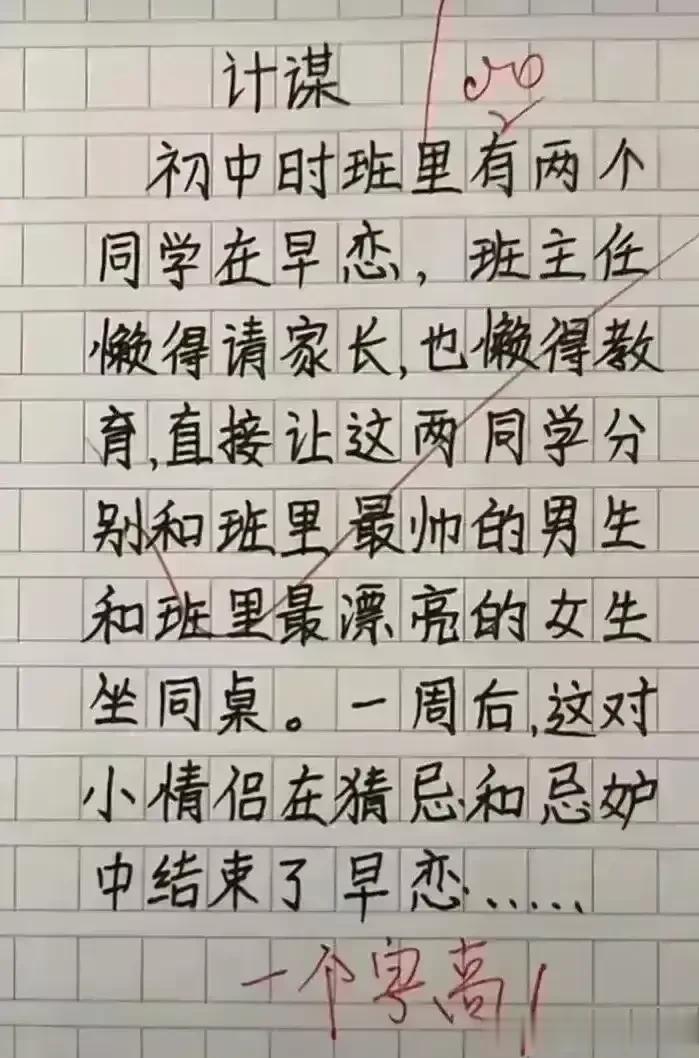 计谋
初中时班里有两个
同学在早恋，班主任
懒得请家长,也懒得教
育,直接让这两同学分
别和班里最帅的男生
和班里最漂亮的女生
坐同桌。一周后,这对
小情侣在猜忌和忌妒
中结束了早恋......
一个字,高!